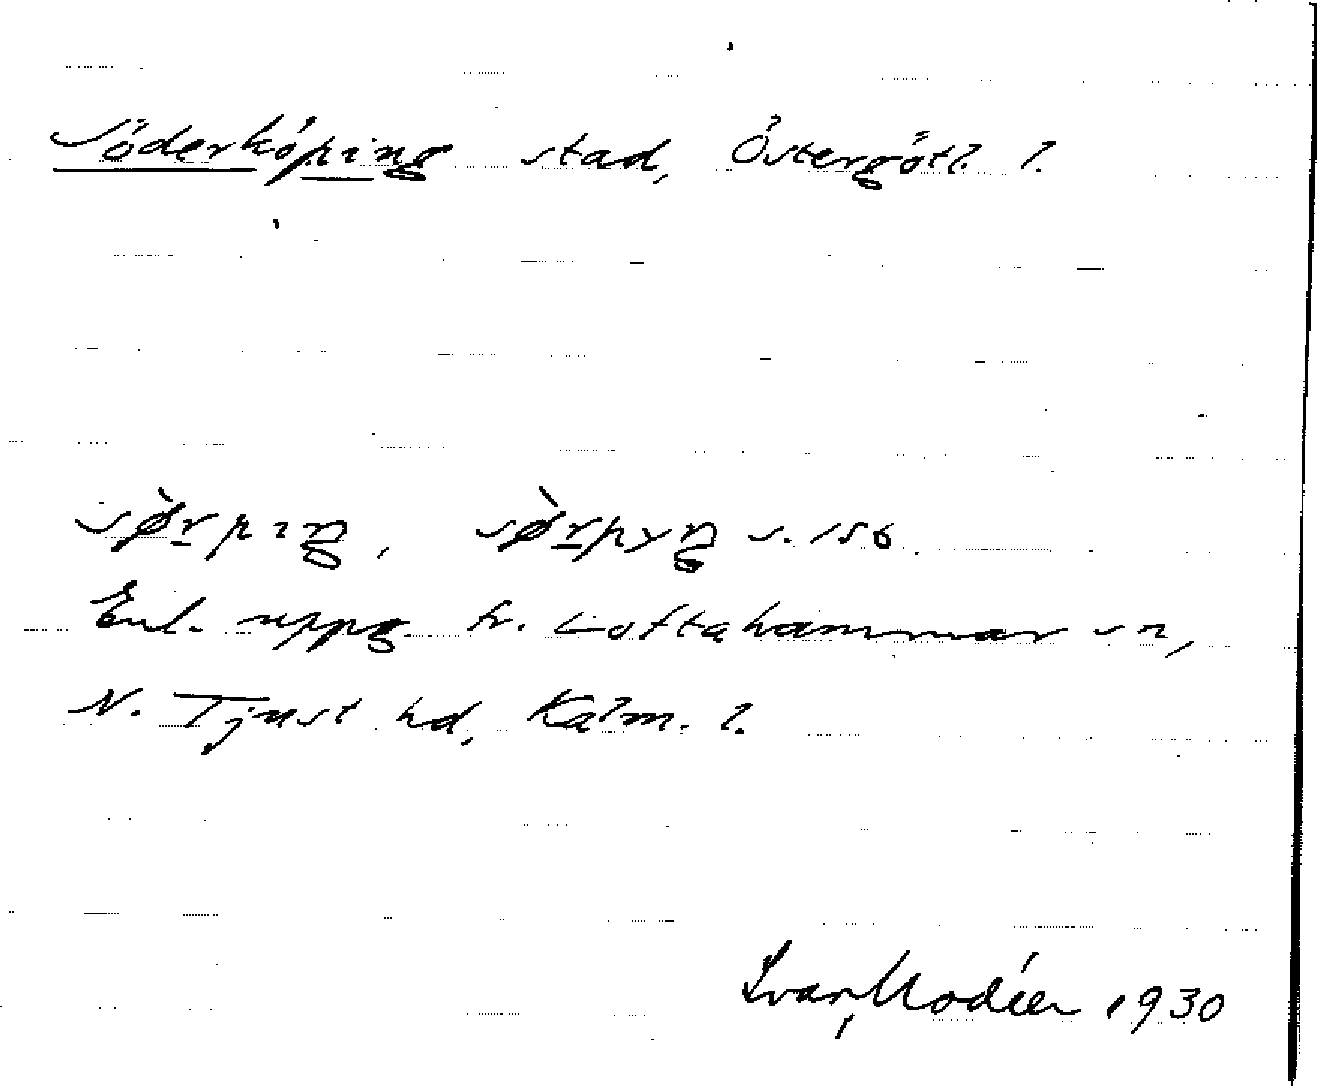 Söderköping stad, Östergötl. l.
sø̀rpıŋ, sø̀rpyŋ s. 156.
Enl. uppg. fr. Loftahammar sn,
N. Tjust hd, Kalm. l.
Ivar Modéer 1930